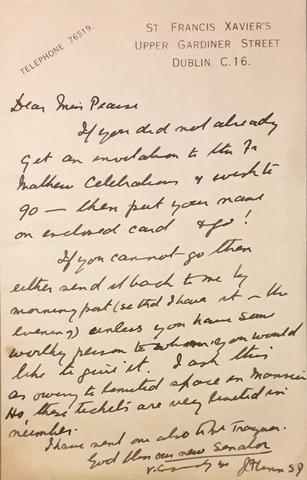 TELEPHONE 76519.
ST. FRANCIS XAVIER'S,
UPPER GARDINER STREET,
DUBLIN, C.16.
Dear Miss Pearse
If you did not already
get an invitation to the Fr
Mathew Celebrations & wish to
go — then put your name
on enclosed card & go!
If you cannot go then
either send it back to me by
morning post (so that I have it — the
evening) unless you have some
worthy person to whom you would
like to give it. I ask this
as owing to limited space in Mansion
Ho, these tickets are very limited in
number.
I have sent one also to Mr Traynor.
God bless our new Senator
SJ